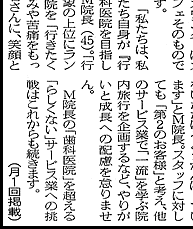 フ、そのもので
す。
「私たちは、私
たち自身が『行
科医院を目指し
M院長(49)。「行
象の上位にラン
院を『行きたく
みや苦痛をもっ
さんに、笑顔と
ます」とM院長。スタッフに対し
ても「第2のお客様」と考え、他
のサービス業で「一流」を学ぶ院
内旅行を企画するなど、やりが
いと成長への配慮を怠りません。
M院長の「歯科医院」を超える
「らしくない」サービス業への挑
戦はこれからも続きます。
(月1回掲載)